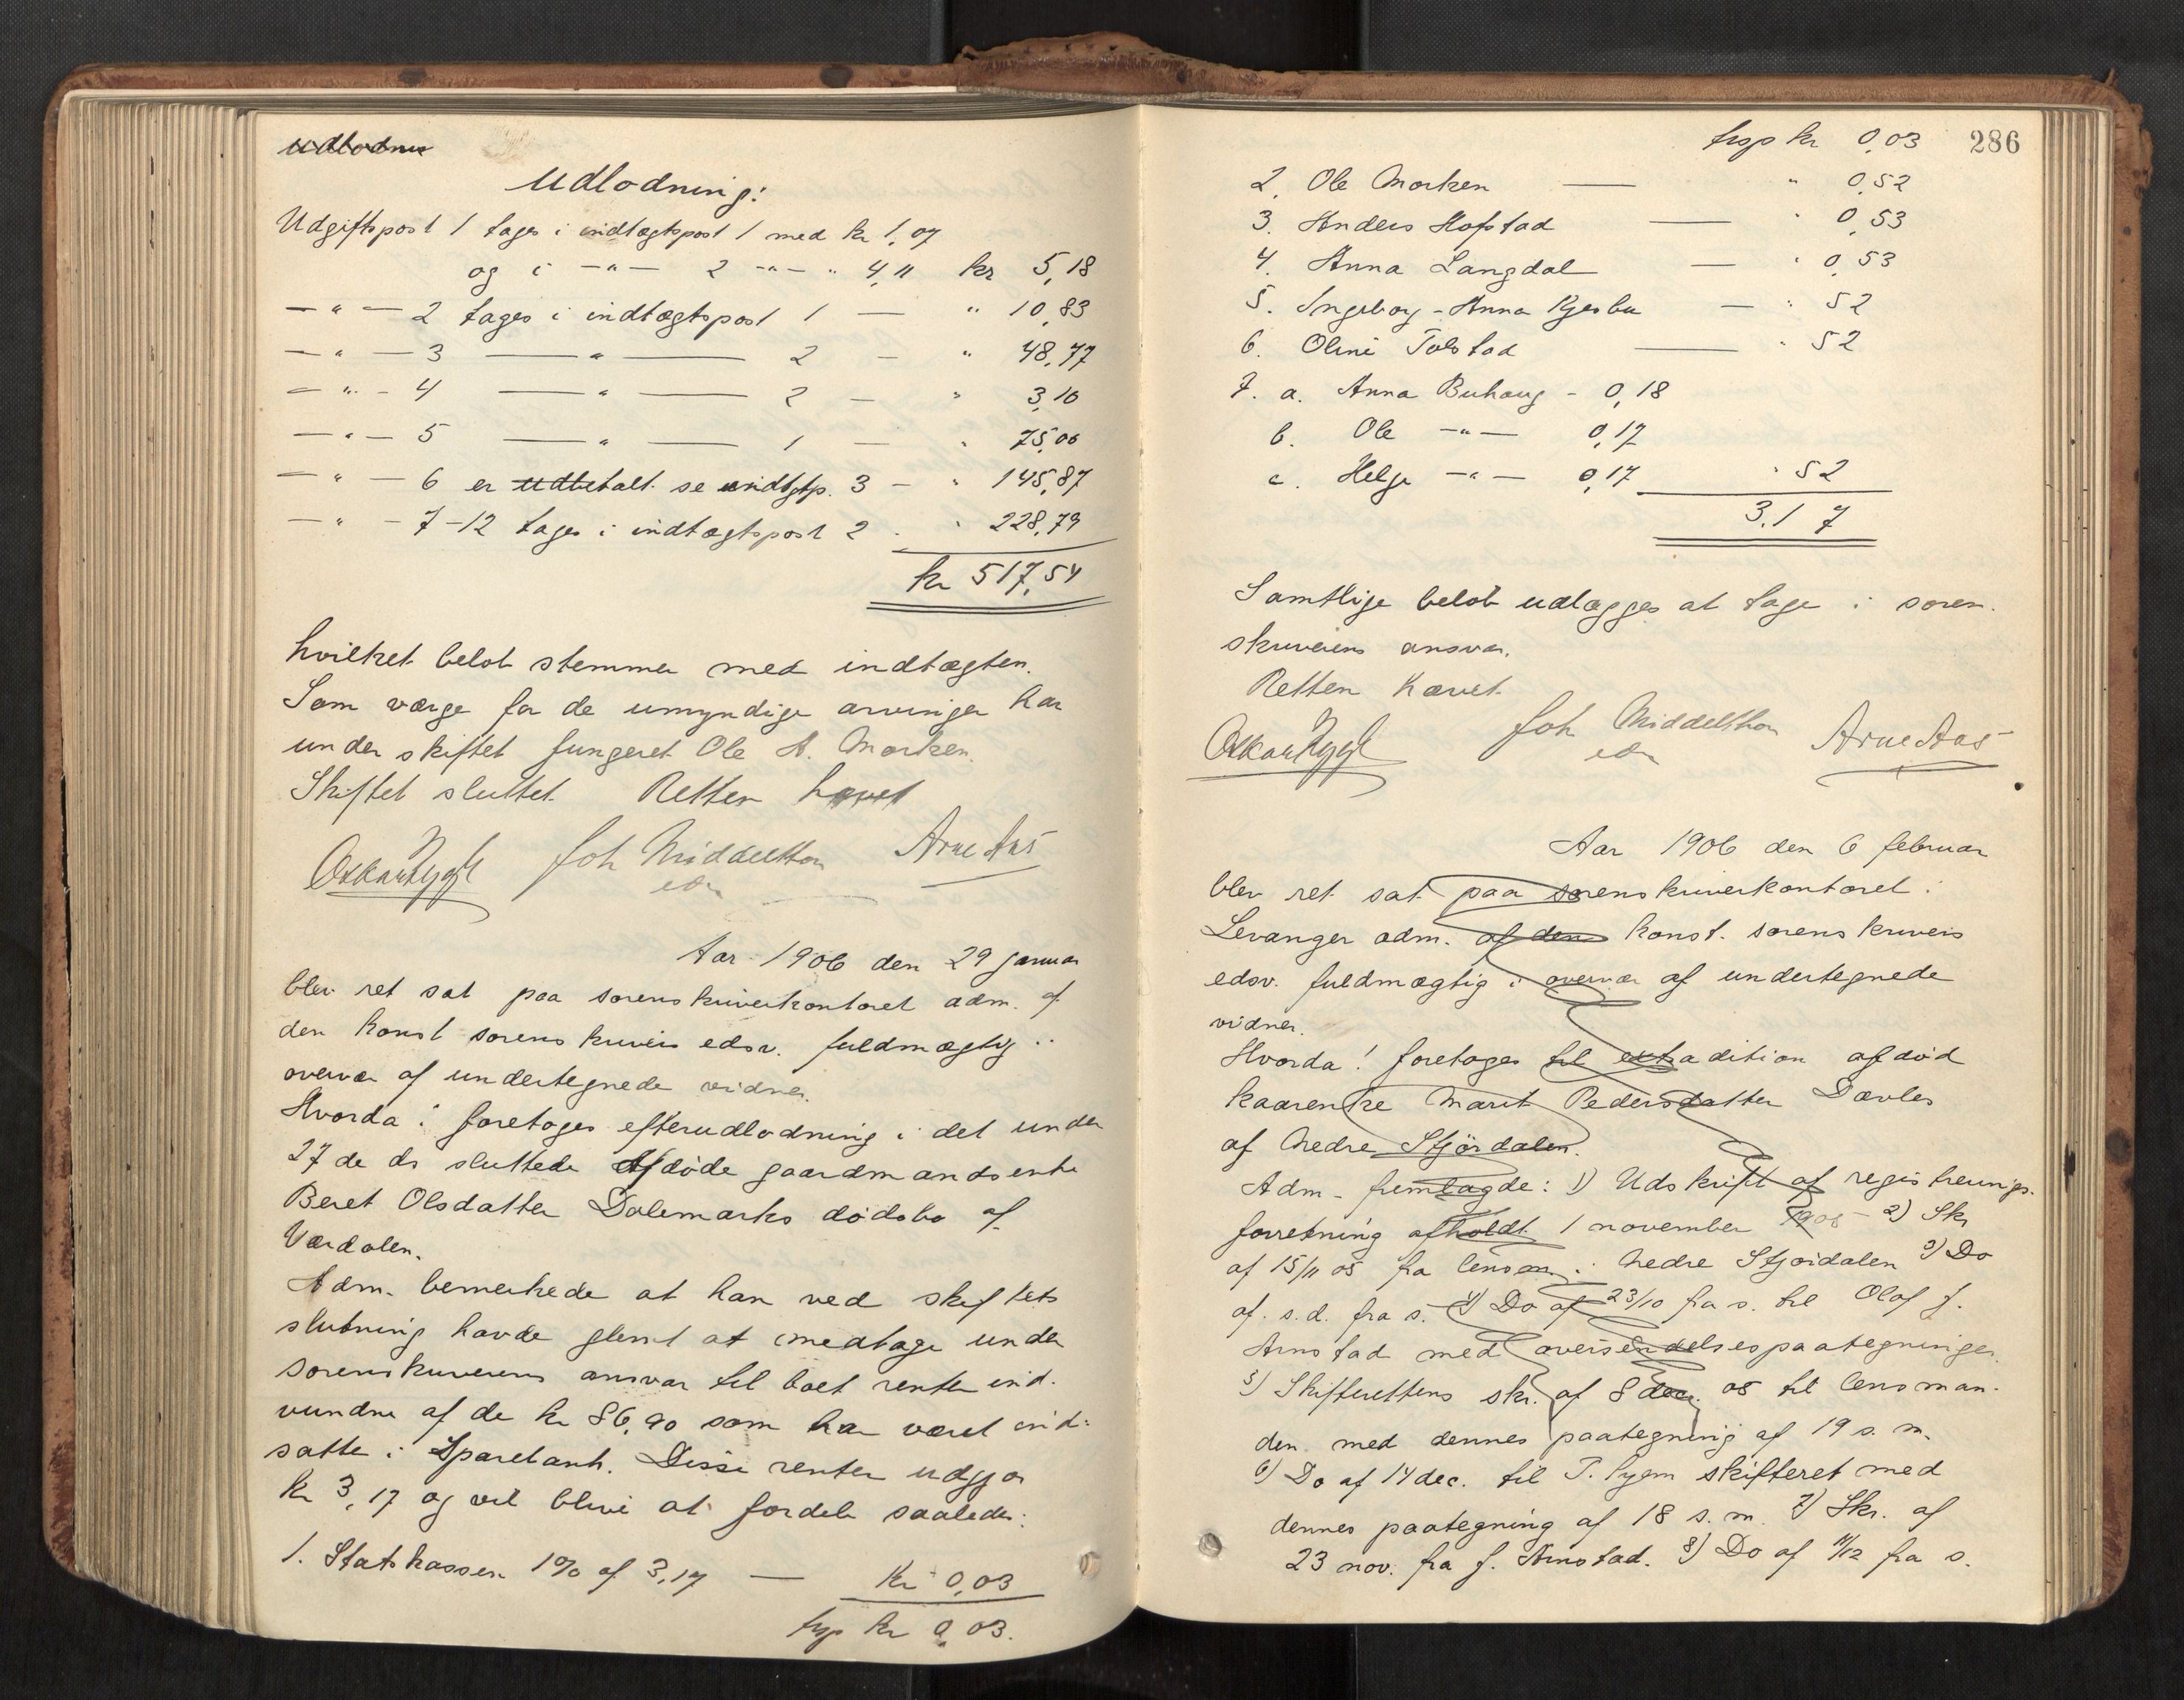 udlodnin
Udlodning:
Udgiftspost 1 tages i indtægtspost 1 med kr 1,07
og i —"— 2 —"— " 4,11 kr 5,18
—"— 2 tages i indtægtspost 1 — " 10,83
—"— 3 —"— 2 — " 48,77
—"— 4 —"— 2 — " 3,10
—"— 5 —"— 1 — " 75,00
—"— 6 er udbetalt se indtgtp. 3 — " 145,87
—"— 7-12 tages i indtægtspost 2 . " 228,79
kr 517,54
hvilket beløb stemmer med indtægten.
Som værge for de umyndige arvinger har
under skiftet fungeret Ole A. Morken.
Skiftet sluttet. Retten hævet
Oskar Rygh Joh Middelthon Arne Aas
edsv
Aar 1906 den 29 januar
blev ret sat paa sorenskriverkontoret adm. af
den konst sorenskrivers edsv. fuldmægtig i
overvær af undertegnede vidner.
Hvorda: foretoges efterudlodning i det under
27de ds sluttede afdöde gaardmandsenke
Beret Olsdatter Dalemarks dödsbo af
Værdalen.
Adm. bemerkede at han ved skiftets
slutning havde glemt at medtage under
sorenskriverens ansvar til boet renter ind-
vundne af de kr 86,90 som har været ind-
satte i Sparebank. Disse renter udgjør
kr 3,17 og vil blive at fordele saaledes:
1. Statskassen 1% af 3,17 — kr 0,03
trsp kr 0,03.
trsp kr 0,03 286
2. Ole Morken — " 0,52
3. Anders Hofstad — " 0,53
4. Anna Langdal — " 0,53
5. Ingeborg-Anna Kjesbu — " 52
6. Oline Tolstad — " 52
7. a. Anna Buhaug - 0,18
b. Ole —"— 0,17
c. Helge —"— 0,17 " 52
3,17
Samtlige beløb udlægges at tage i soren-
skriverens ansvar.
Retten hævet.
Oskar Rygh Joh Middelthon Arne Aas
edsv
Aar 1906 den 6 februar
blev ret sat paa sorenskriverkontoret i
Levanger adm. af den konst. sorenskrivers
edsv. fuldmægtig i overvær af undertegnede
vidner.
Hvorda! foretoges til extradition afdöd
kaarenke Marit Pedersdatter Dævles
af Nedre Stjördalen.
Adm. fremlagde: 1) Udskrift af registrerings-
forretning afholdt 1 november 1905 - 2) Skr
af 15/11 05 fra lensm. i Nedre Stjørdalen 3) Do
af. s.d. fra s. 4) Do af 23/10 fra s. til Olaf J.
Arnstad med oversendelsespaategninger.
5) Skifterettens skr. af 8 dec. 05 til lensman-
den med dennes paategning af 19 s. m.
6) Do af 14 dec. til T. skifteret med
dennes paategning af 18 s. m. 7) Skr. af
23 nov. fra J. Arnstad. 8) Do af 11/12 fra s.